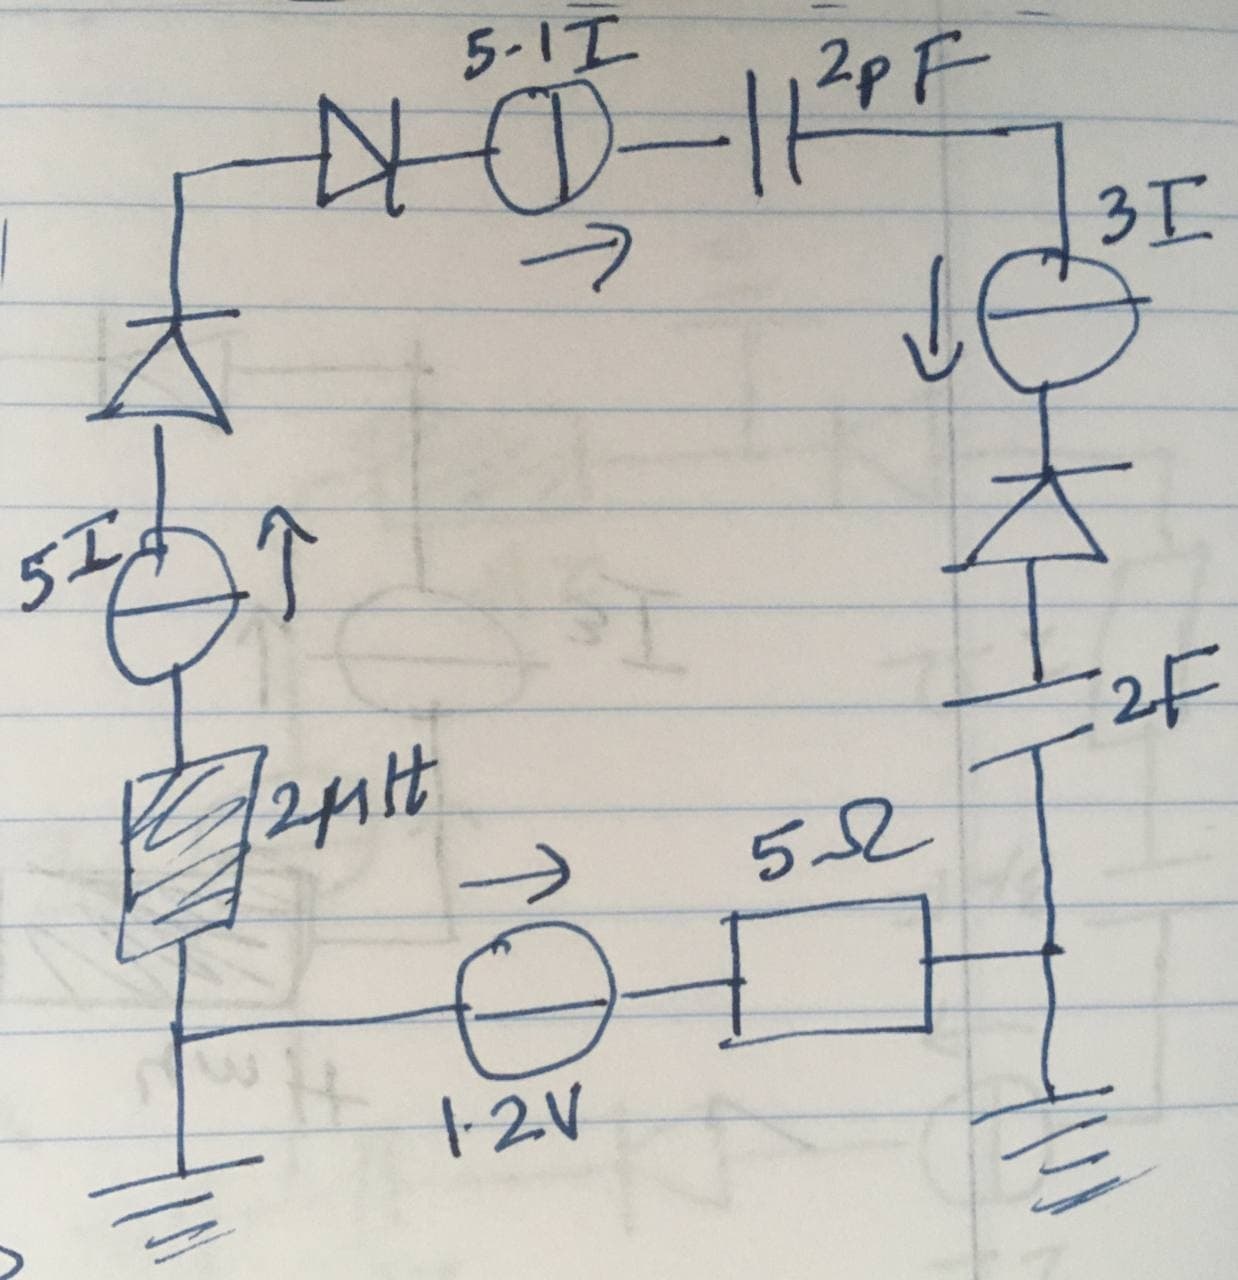 5.1I
2pF
3I
5I
2F
2μH
5Ω
1.2V